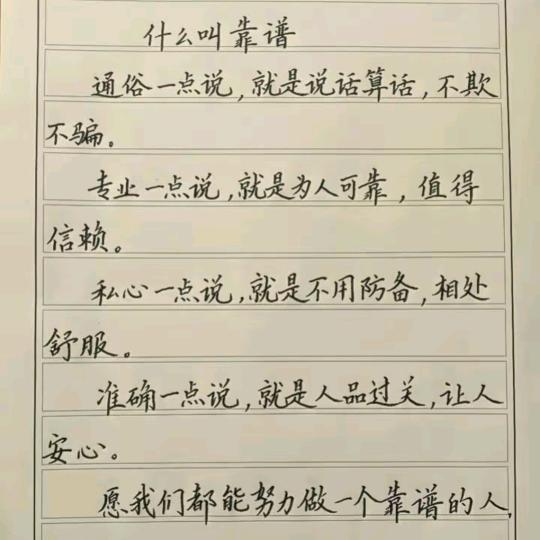 什么叫靠谱
通俗一点说，就是说话算话，不欺
不骗。
专业一点说，就是为人可靠，值得
信赖。
私心一点说，就是不用防备，相处
舒服。
准确一点说，就是人品过关，让人
安心。
愿我们都能努力做一个靠谱的人，